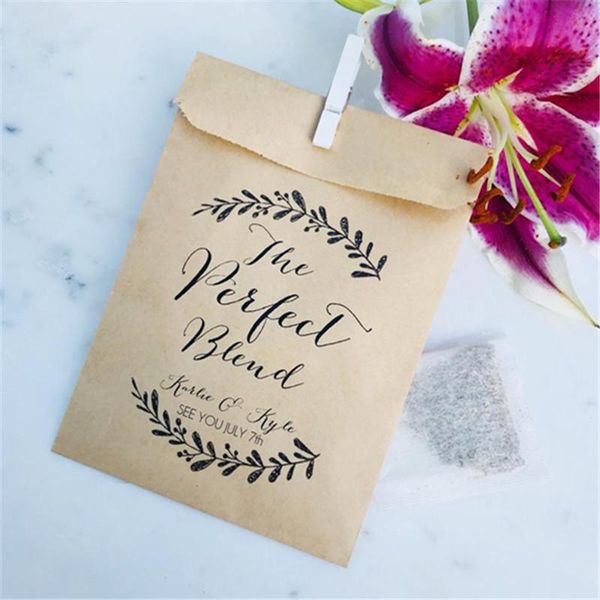 The
Perfect
Blend
Karlie & Kyle
SEE YOU JULY 7th